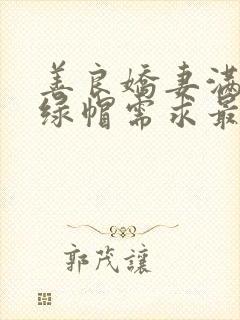 善良嬌妻滿
绿帽需求最
郭茂讓